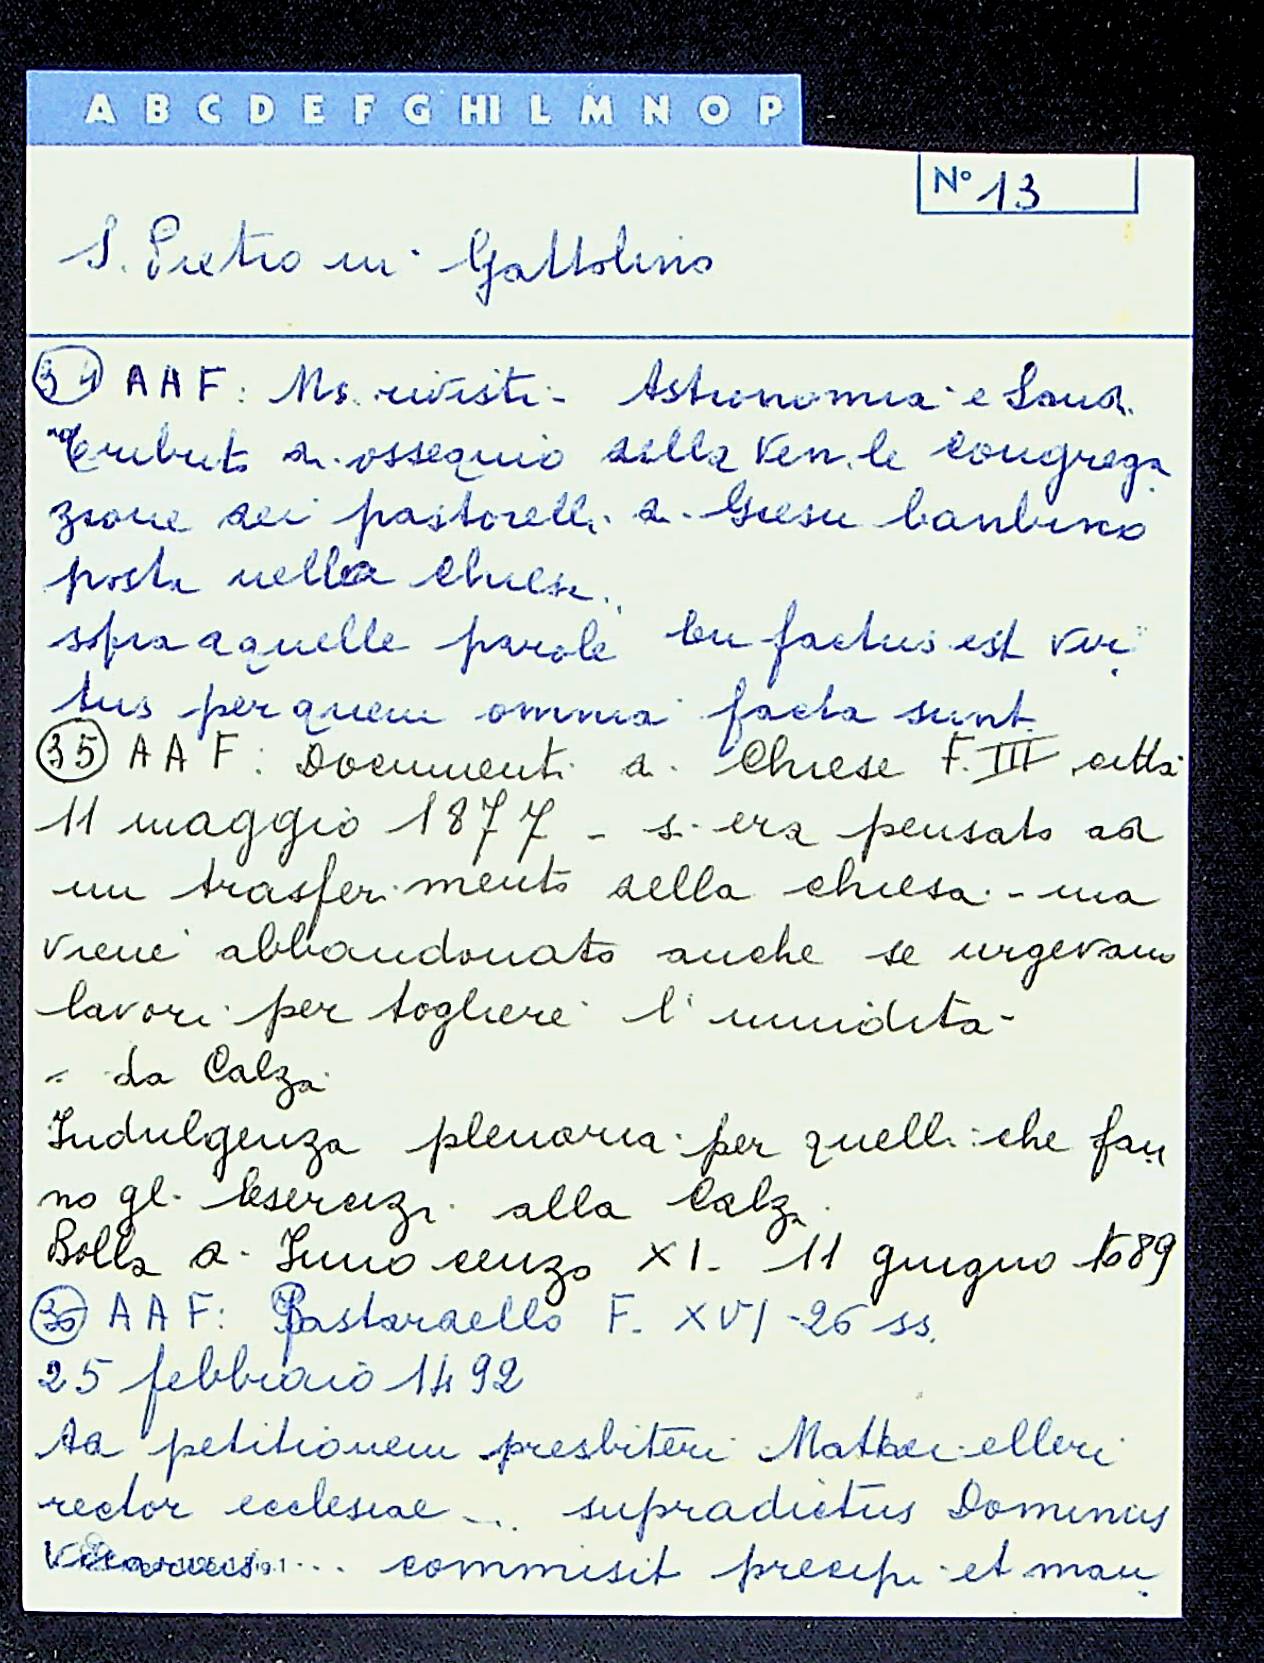 A B C D E F G HI L M N O P
N° 13
S. Pietro in Gattolino
34 AAF: Ms. rivisti - Astronomia e
Tributo di ossequio della Ven.le congrega
zione dei pastorelli di Giesu banbino
posta nella chiesa..
sopra a quelle parole factus est ver
tus per quem omnia facta sunt.
35 AAF: Documenti di Chiese F. III città
11 maggio 1877 - si era pensato ad
un trasferimento della chiesa - ma
viene abbandonato anche se urgevano
lavori per togliere l'umidità -
- da Calza
Indulgenza plenaria per quelli che fan
no gli Esercizi alla Calza
Bolla di Innocenzo XI - 11 giugno 1689
36 AAF: Pastoraello F. XVI - 26 ss.
25 febbraio 1492
Ad petitionem presbiteri Matthei elleri
rector ecclesiae ... supradictus Dominus
vicarius ... commisit precipi et man